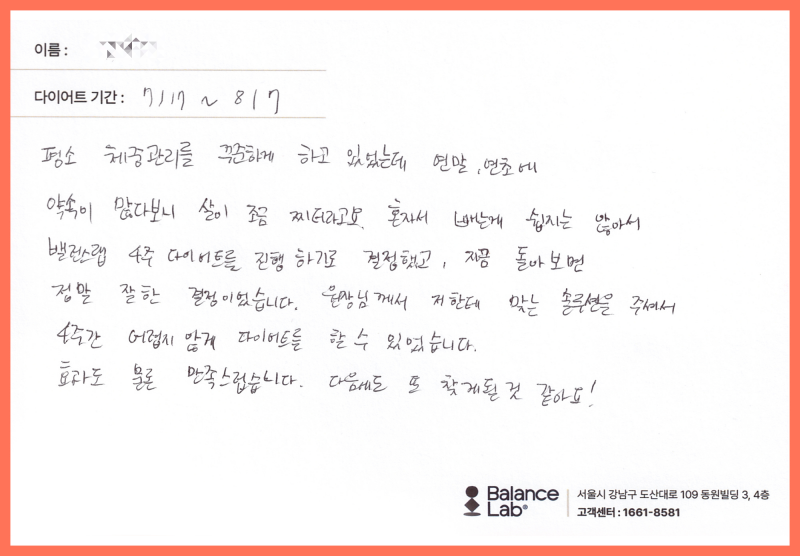 이름 :
다이어트 기간 : 7/17 ~ 8/7
평소 체중관리를 꾸준하게 하고 있었는데 연말, 연초에
약속이 많다보니 살이 조금 찌더라고요. 혼자서 빼는게 쉽지는 않아서
밸런스랩 4주 다이어트를 진행하기로 결정했고, 지금 돌아보면
정말 잘한 결정이었습니다. 원장님께서 저한테 맞는 솔루션을 주셔서
4주간 어렵지 않게 다이어트를 할 수 있었습니다.
효과도 물론 만족스럽습니다. 다음에도 또 찾게될 것 같아요!
Balance Lab®
서울시 강남구 도산대로 109 동원빌딩 3, 4층
고객센터 : 1661-8581